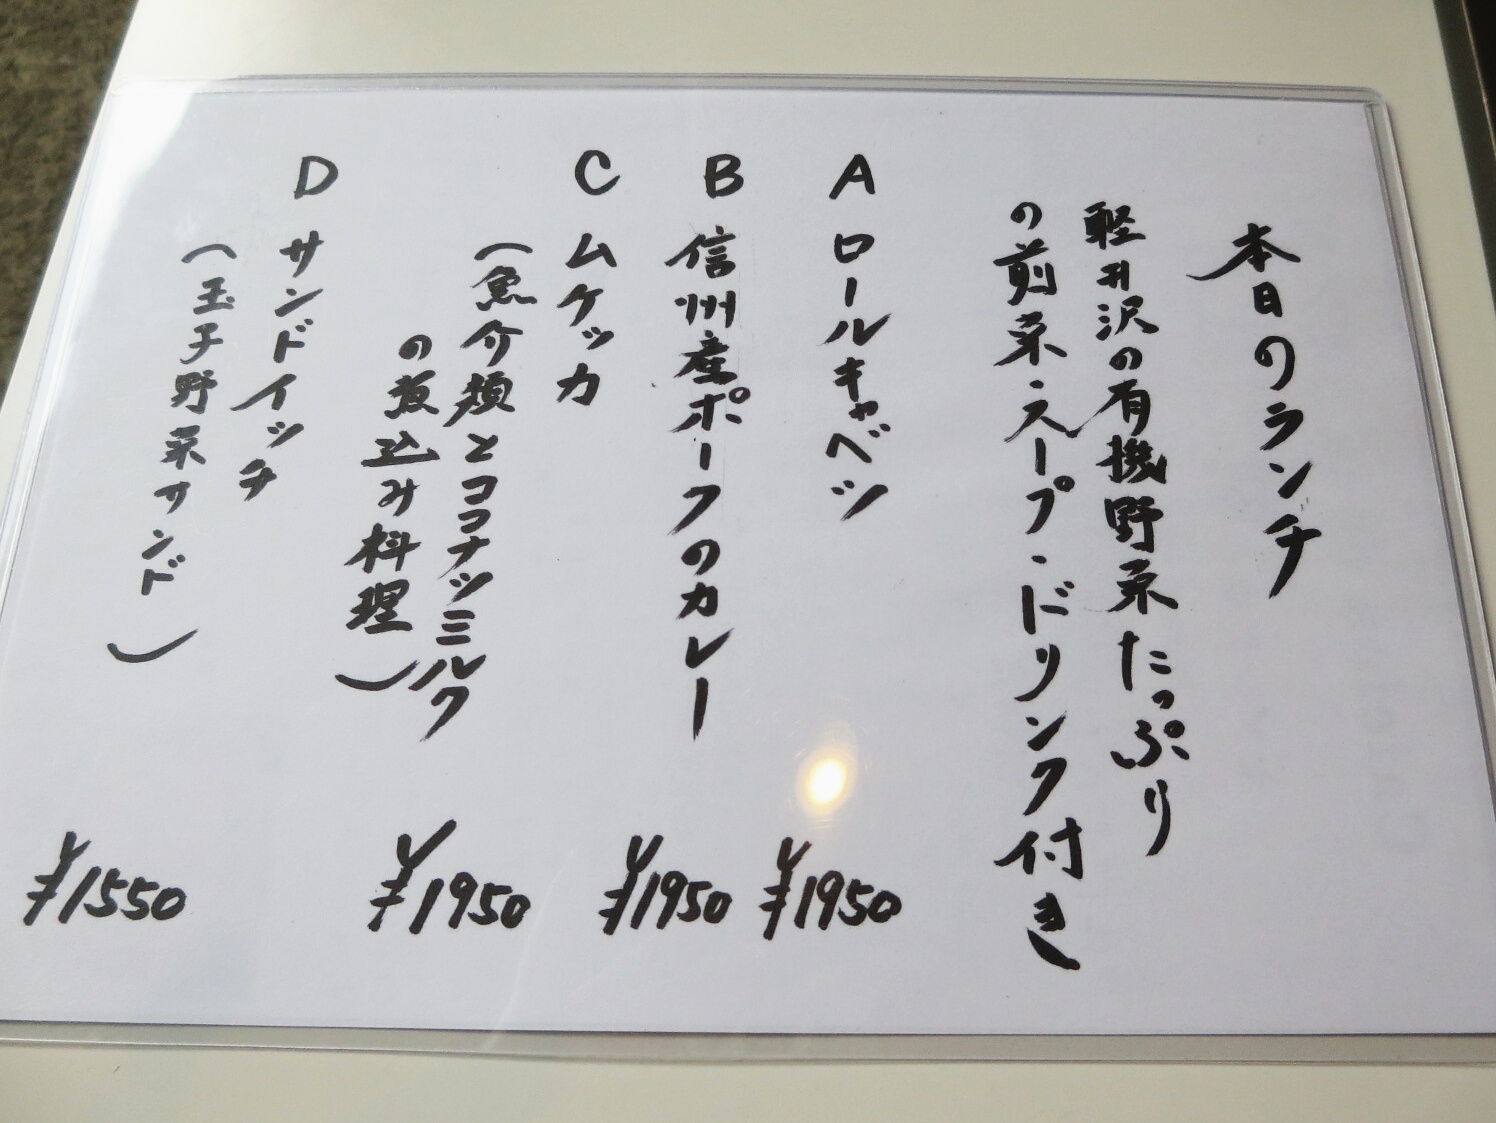 本日のランチ
軽井沢の有機野菜たっぷり
の前菜・スープ・ドリンク付き
A ロールキャベツ ¥1950
B 信州産ポークのカレー ¥1950
C ムケッカ
(魚介類とココナツミルク
の煮込み料理) ¥1950
D サンドイッチ
(玉子野菜サンド) ¥1550